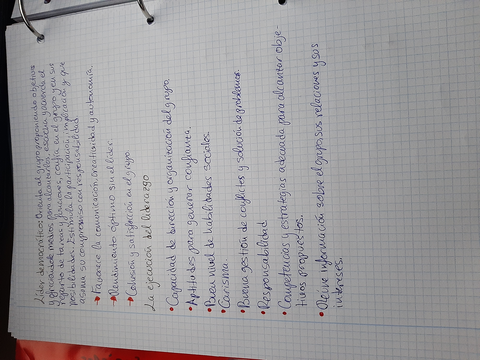 Líder democrático: Orienta al grupo proponiendo objetivos
y ofreciendo medios para alcanzarlos, escucha y atiende el
reparto de tareas y funciones, confía en el grupo y en sus
posibilidades. Estimula la participación, implicación y que
asuman su compromiso con responsabilidad.
→ Favorece la comunicación, creatividad y autonomía.
→ Rendimiento óptimo sin el líder.
→ Cohesión y satisfacción en el grupo.
La ejecución del liderazgo
• Capacidad de dirección y organización del grupo.
• Aptitudes para generar confianza.
• Buen nivel de habilidades sociales.
• Carisma.
• Buena gestión de conflictos y solución de problemas.
• Responsabilidad.
• Competencias y estrategias adecuada para alcanzar obje-
tivos propuestos.
• información sobre el grupo, sus relaciones y sus
intereses.